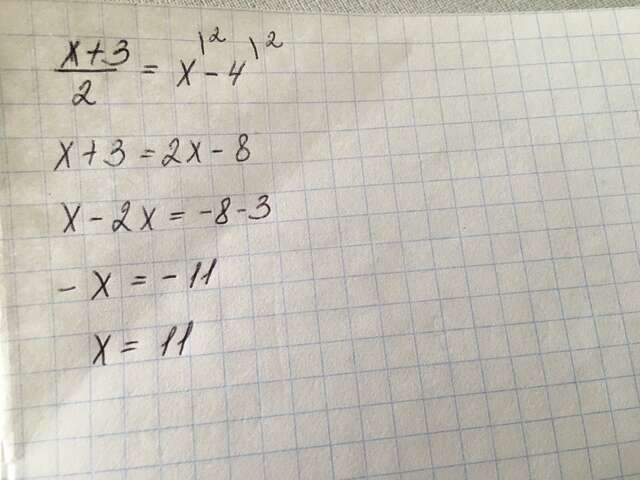 x+3/2 = x\² - 4\²
x+3 = 2x - 8
x - 2x = -8-3
- x = - 11
x = 11